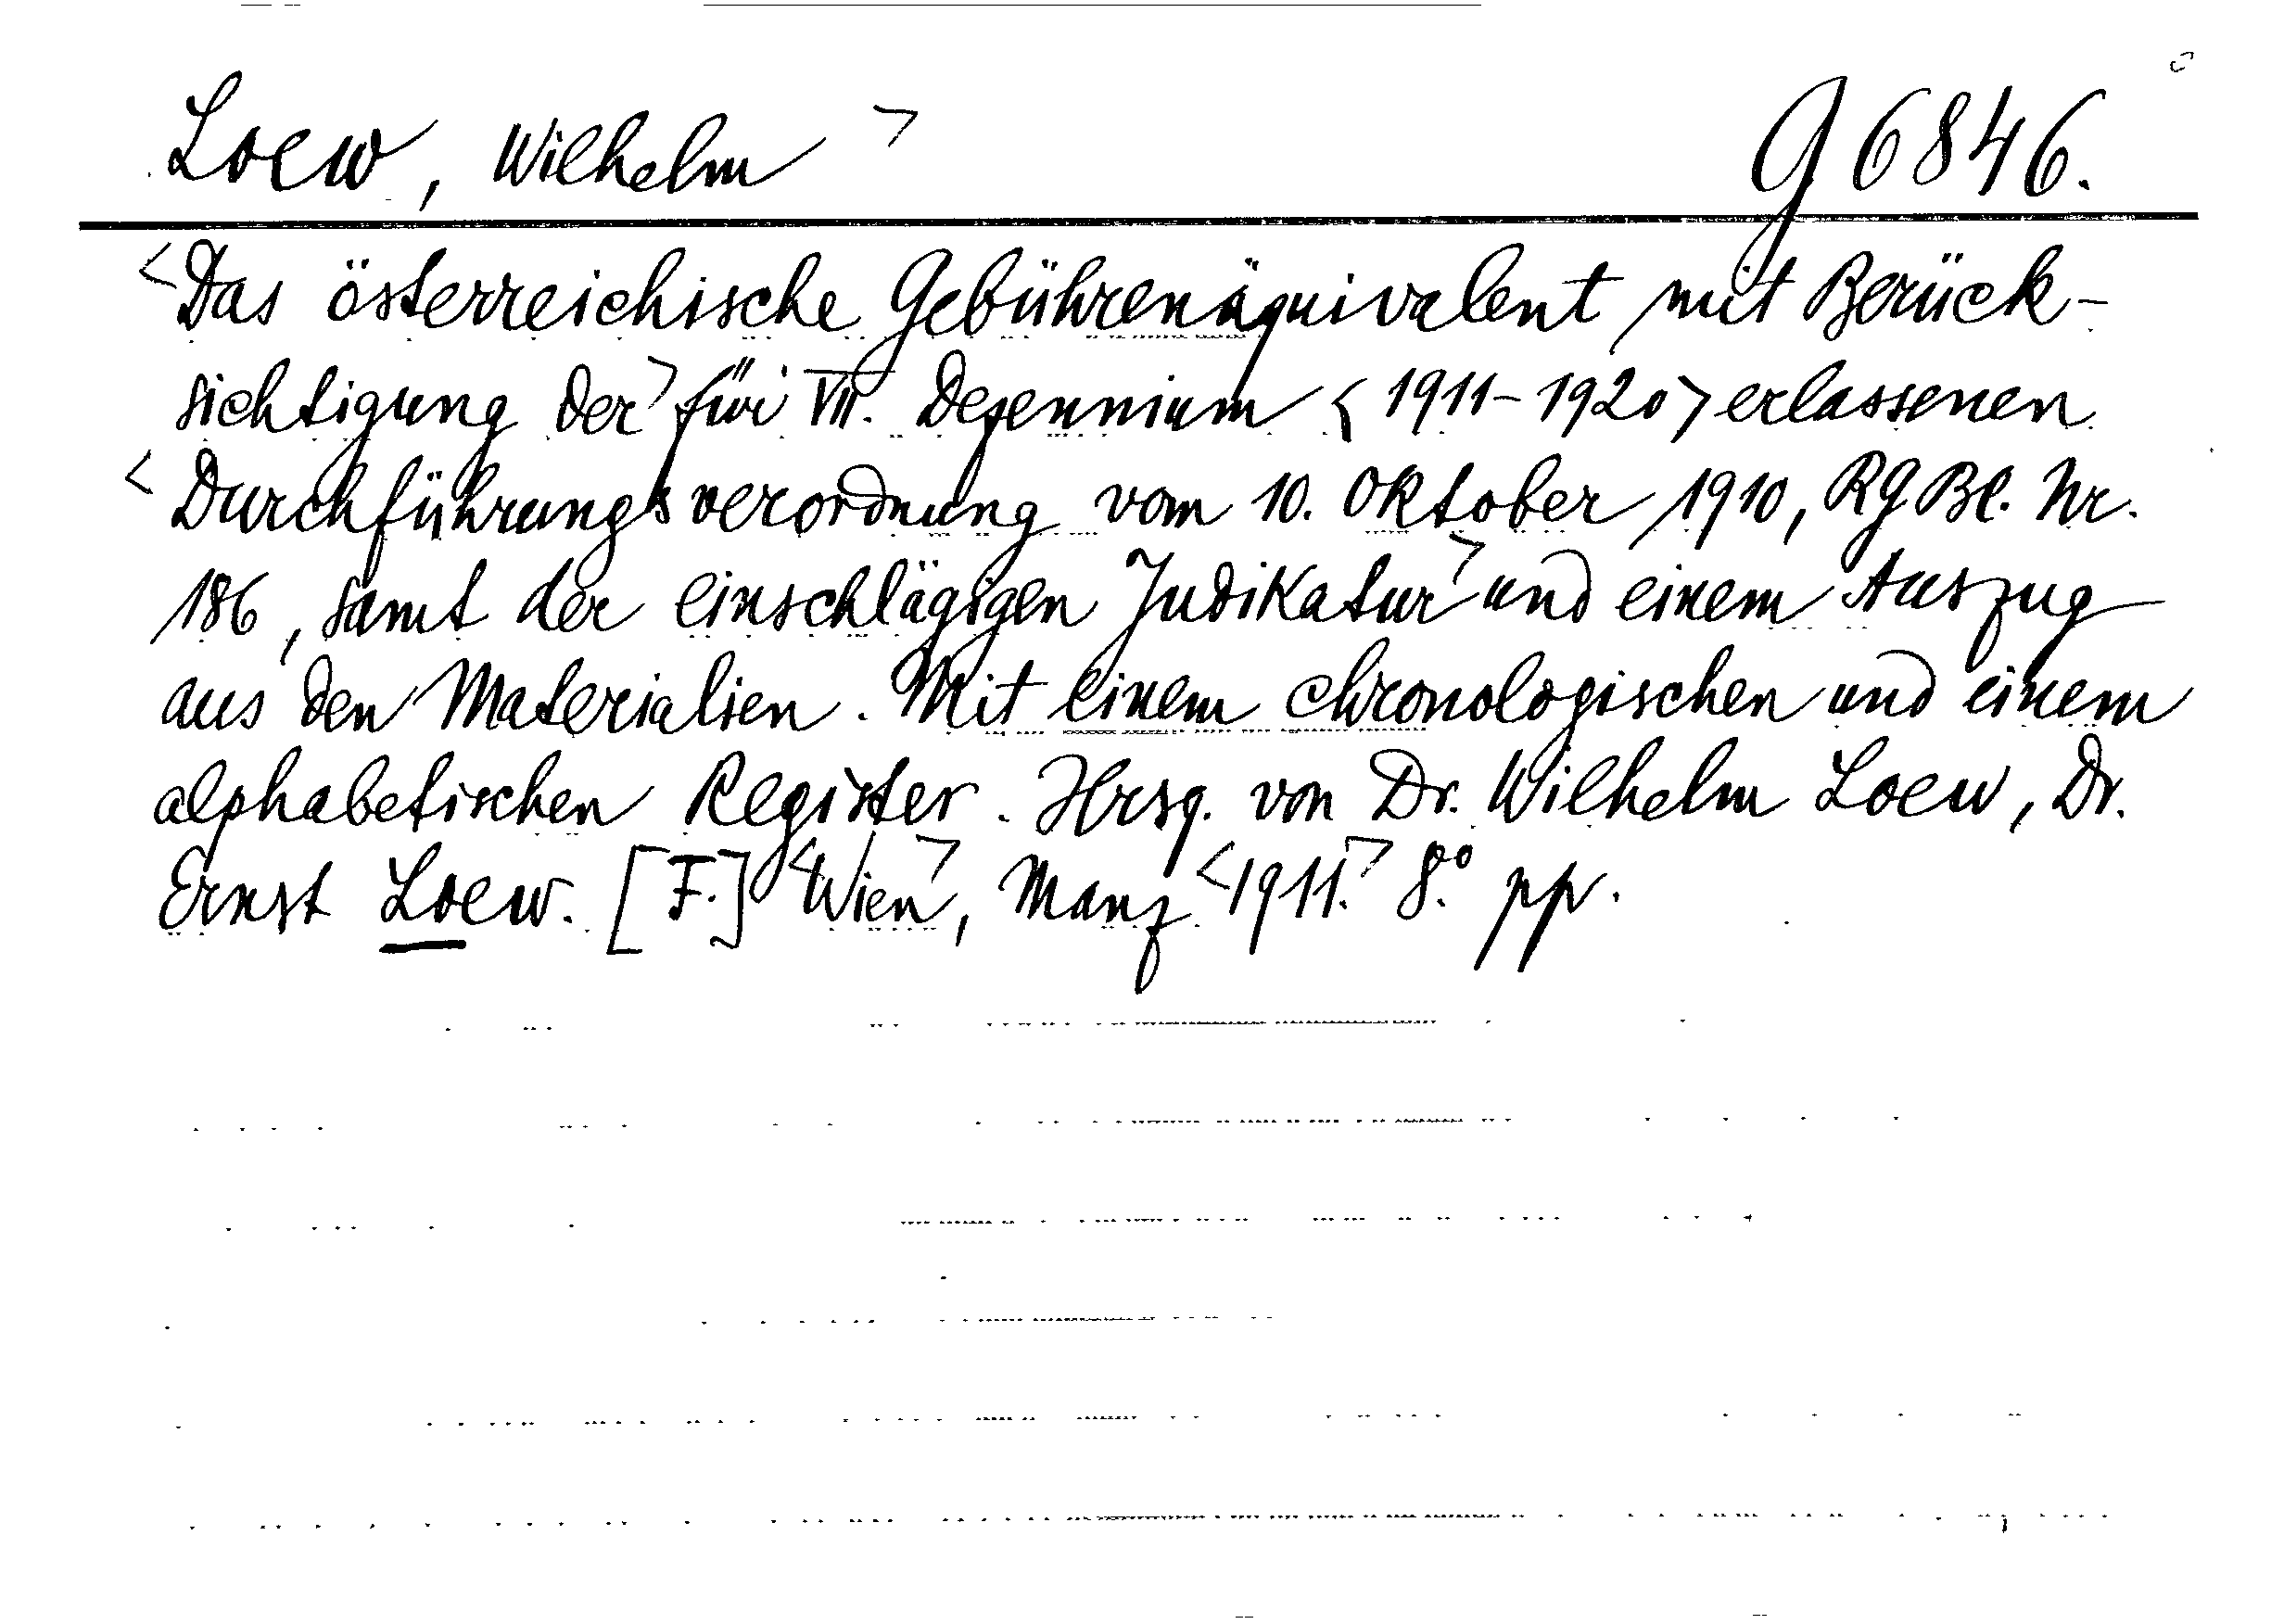 Loew, Wilhelm > G 6846.
<Das österreichische Gebührenäquivalent mit Berück-
sichtigung der> für VII. Dezennium <1911-1920> erlassenen
<Durchführungsverordnung vom 10. Oktober 1910, RGBl. Nr.
186, samt der einschlägigen Judikatur> und einem Auszug
aus den Materialien. Mit einem chronologischen und einem
alphabetischen Register. Hrsg. von Dr. Wilhelm Loew, Dr.
Ernst Loew. [F.] <Wien>, Manz <1911.> 8.° pp.